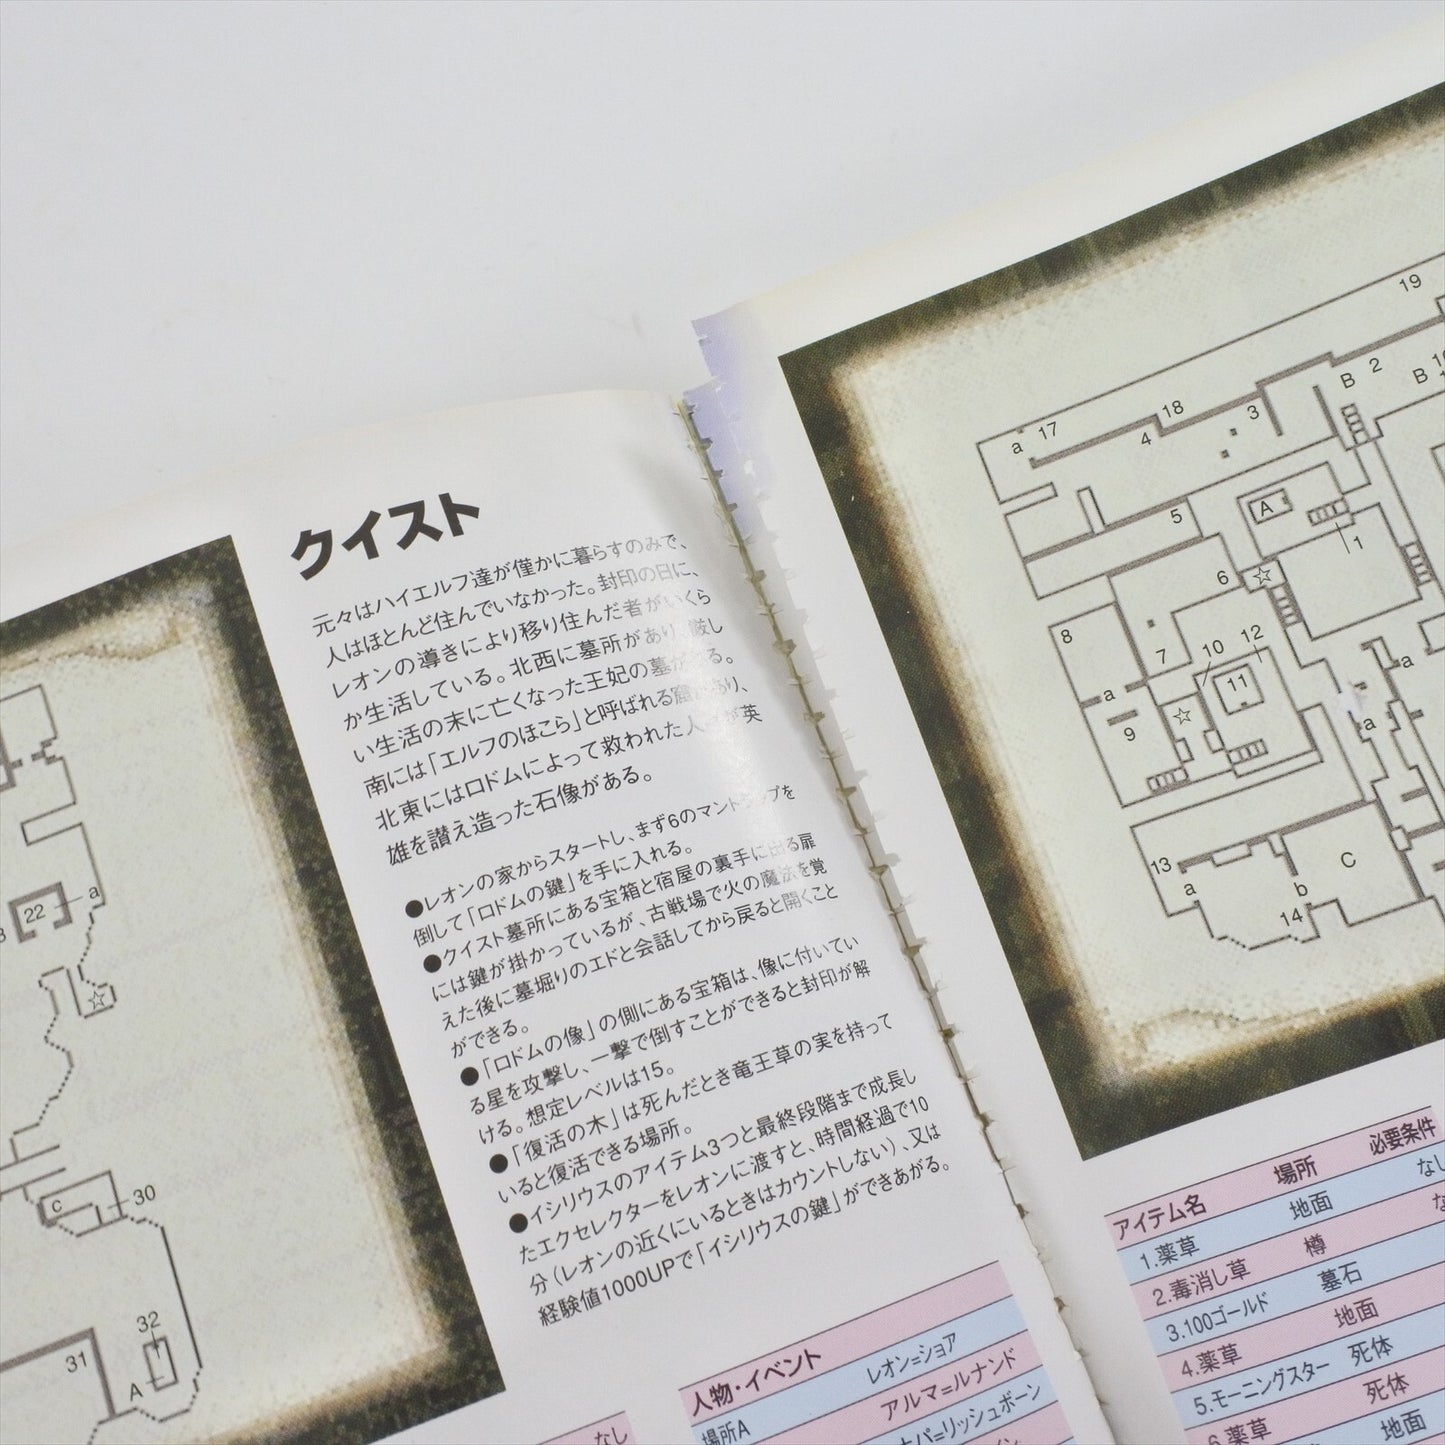 クイスト
元々はハイエルフ達が僅かに暮らすのみで、
人はほとんど住んでいなかった。封印の日に、
レオンの導きにより移り住んだ者がいくら
か生活している。北西に墓所があり、厳し
い生活の末に亡くなった王妃の墓がある。
南には「エルフのほこら」と呼ばれる窟があり、
北東にはロドムによって救われた人々が英
雄を讃え造った石像がある。
●レオンの家からスタートし、まず6のマントラップを
倒して「ロドムの鍵」を手に入れる。
●クイスト墓所にある宝箱と宿屋の裏手に出る扉
には鍵が掛かっているが、古戦場で火の魔法を覚
えた後に墓堀りのエドと会話してから戻ると開くこと
ができる。
●「ロドムの像」の側にある宝箱は、像に付いてい
る星を攻撃し、一撃で倒すことができると封印が解
ける。想定レベルは15。
●「復活の木」は死んだとき竜王草の実を持って
いると復活できる場所。
●イシリウスのアイテム3つと最終段階まで成長し
たエクセレクターをレオンに渡すと、時間経過で10
分(レオンの近くにいるときはカウントしない)、又は
経験値1000UPで「イシリウスの鍵」ができあがる。
人物・イベント
場所A レオン=ショア
アルマ=ルナンド
パ=リッシュボーン
なし
22
a
☆
c
30
32
31
A
19
B 2
B
a 17
18
3
4
A
5
1
6 ☆
8
7
10
12
a
11
☆
9
a
a
13
a
b
C
14
アイテム名 場所 必要条件
1.薬草 地面 なし
2.毒消し草 樽
3.100ゴールド 墓石
4.薬草 地面
5.モーニングスター 死体
6.薬草 死体
地面